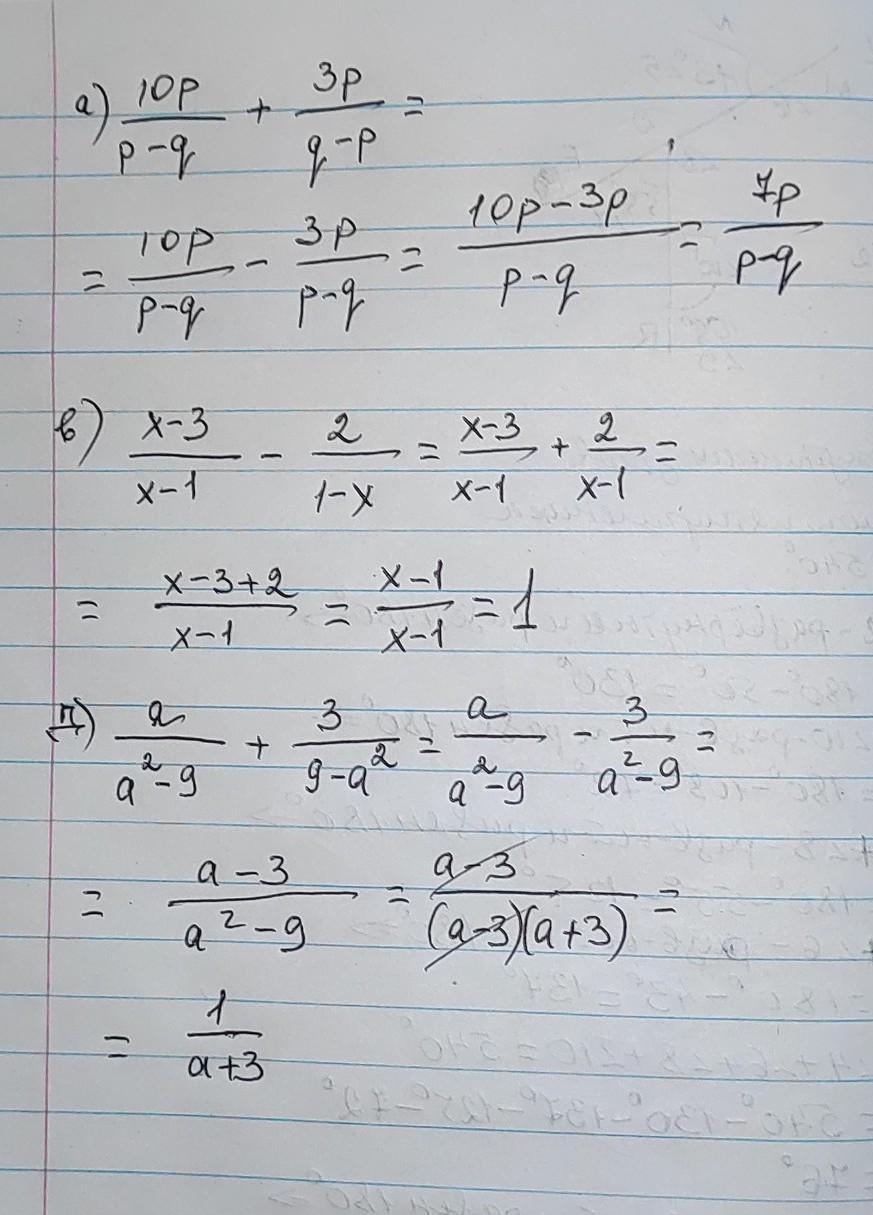 а) 10p/(p-q) + 3p/(q-p) =
= 10p/(p-q) - 3p/(p-q) = (10p-3p)/(p-q) = 7p/(p-q)
в) (x-3)/(x-1) - 2/(1-x) = (x-3)/(x-1) + 2/(x-1) =
= (x-3+2)/(x-1) = (x-1)/(x-1) = 1
д) a/(a²-9) + 3/(9-a²) = a/(a²-9) - 3/(a²-9) =
= (a-3)/(a²-9) = (a-3)/((a-3)(a+3)) =
= 1/(a+3)